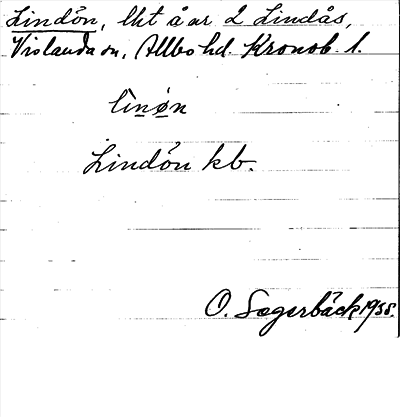 Lindön, lht å ar 2 Lindås,
Vislanda sn, Allbo hd. Kronob. l.
lìnø̀n
Lindön kb.
O. Sagerbäck 1935.